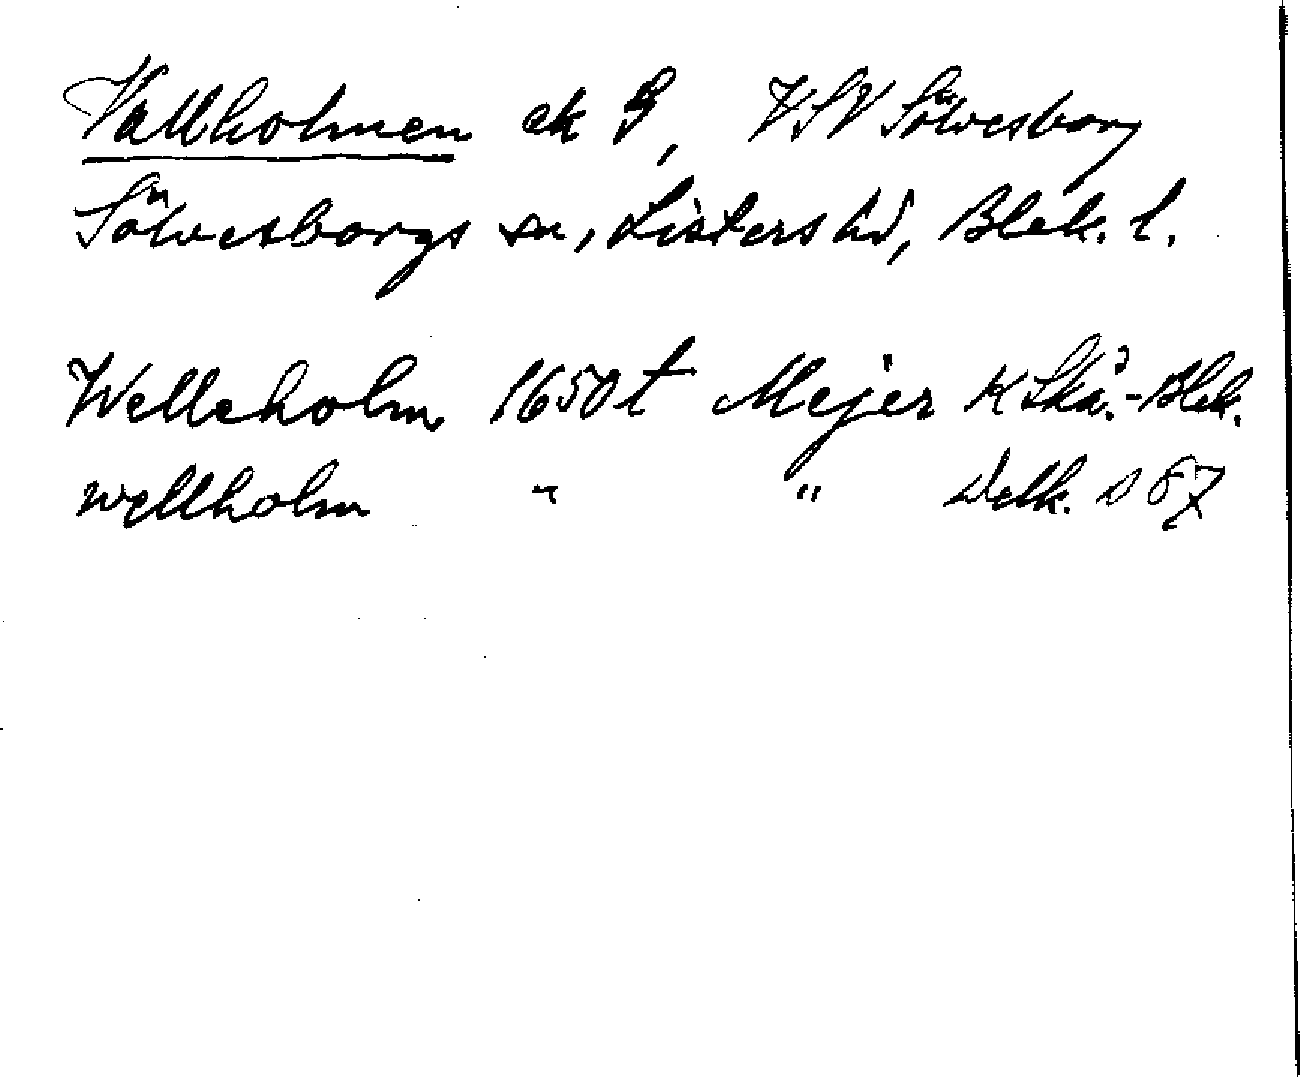 Vallholmen ek G, VSV Sölvesborg
Sölvesborgs sn, Listers hd, Blek. l.
Welleholm 1650t Mejer K Skå.-Blek.
Wellholm " " Delk. D 67